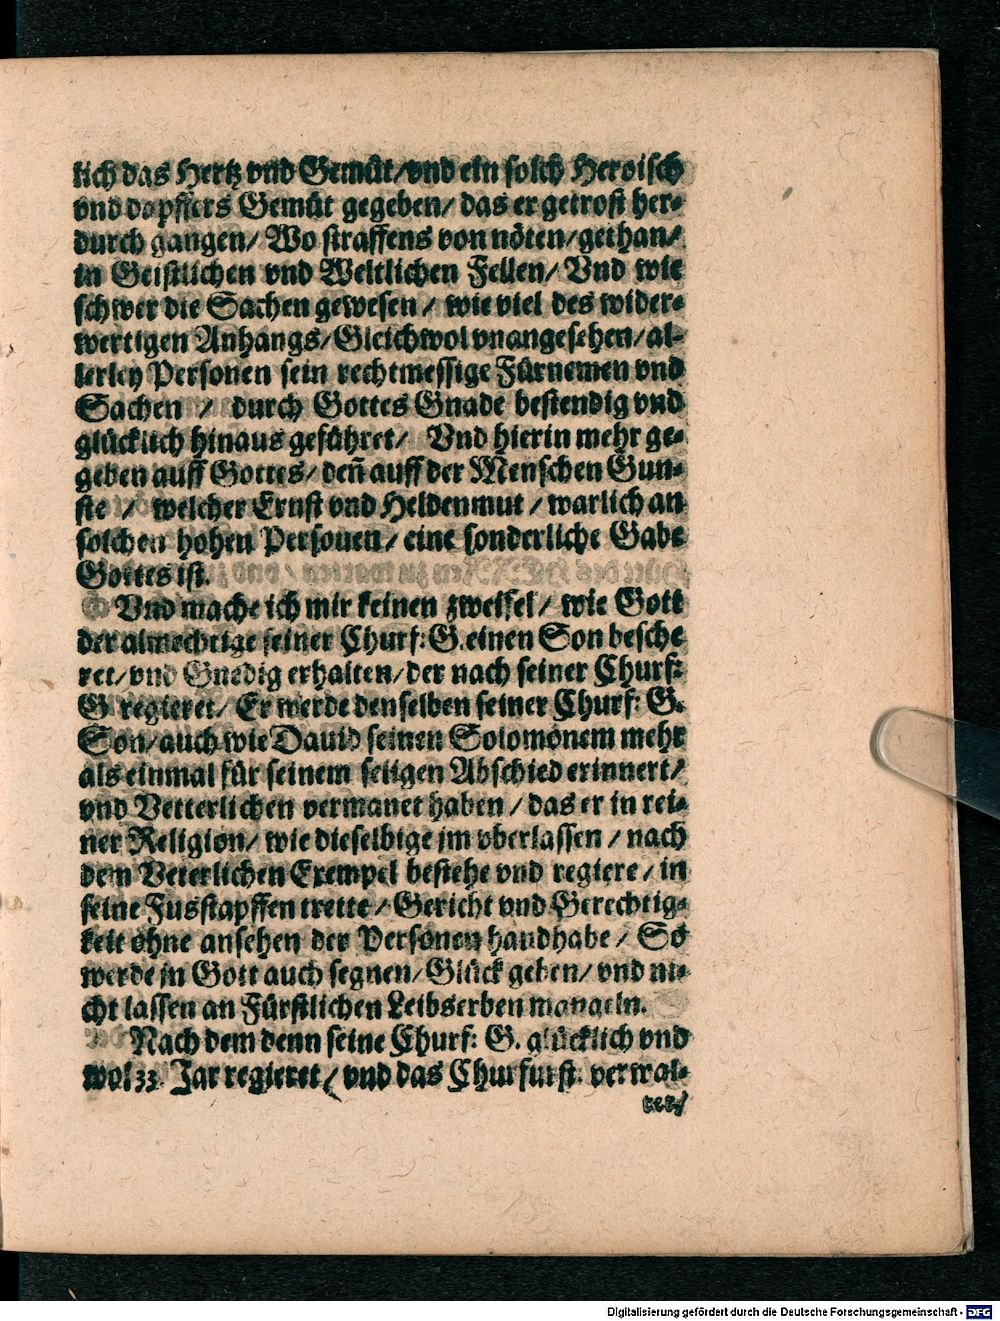 lich das Hertz vnd Gemüt/vnd ein solch Heroisch
vnd dapffers Gemüt gegeben/ das er getrost her-
durch gangen/ Wo straffens von nöten/gethan/
in Geistlichen vnd Weltlichen Fellen/ Vnd wie
schwer die Sachen gewesen / wie viel des wider-
wertigen Anhangs/Gleichwol vnangesehen/al-
lerley Personen sein rechtmessige Fürnemen vnd
Sachen / durch Gottes Gnade bestendig vnd
glücklich hinaus geführet/ Vnd hierin mehr ge-
geben auff Gottes/ deñ auff der Menschen Gun-
ste / welcher Ernst vnd Heldenmut / warlich an
solchen hohen Personen/ eine sonderliche Gabe
Gottes ist.
Vnd mache ich mir keinen zweifel/ wie Gott
der almechtige seiner Churf: G. einen Son besche
ret/vnd Gnedig erhalten/der nach seiner Churf:
G. regieret/ Er werde denselben seiner Churf: G.
Son/auch wie Dauid seinen Solomonem mehr
als einmal für seinem seligen Abschied erinnert/
vnd Vetterlichen vermanet haben / das er in rei-
ner Religion/ wie dieselbige jm vberlassen / nach
dem Veterlichen Exempel bestehe vnd regiere / in
seine Fusstapffen trette / Gericht vnd Gerechtig-
keit ohne ansehen der Personen handhabe / So
werde jn Gott auch segnen/Glück geben/ vnd ni-
cht lassen an Fürstlichen Leibserben mangeln.
Nach dem denn seine Churf: G. glücklich vnd
wol 33. Jar regieret / vnd das Churfürst. verwal-
tet/
Digitalisierung gefördert durch die Deutsche Forschungsgemeinschaft - DFG